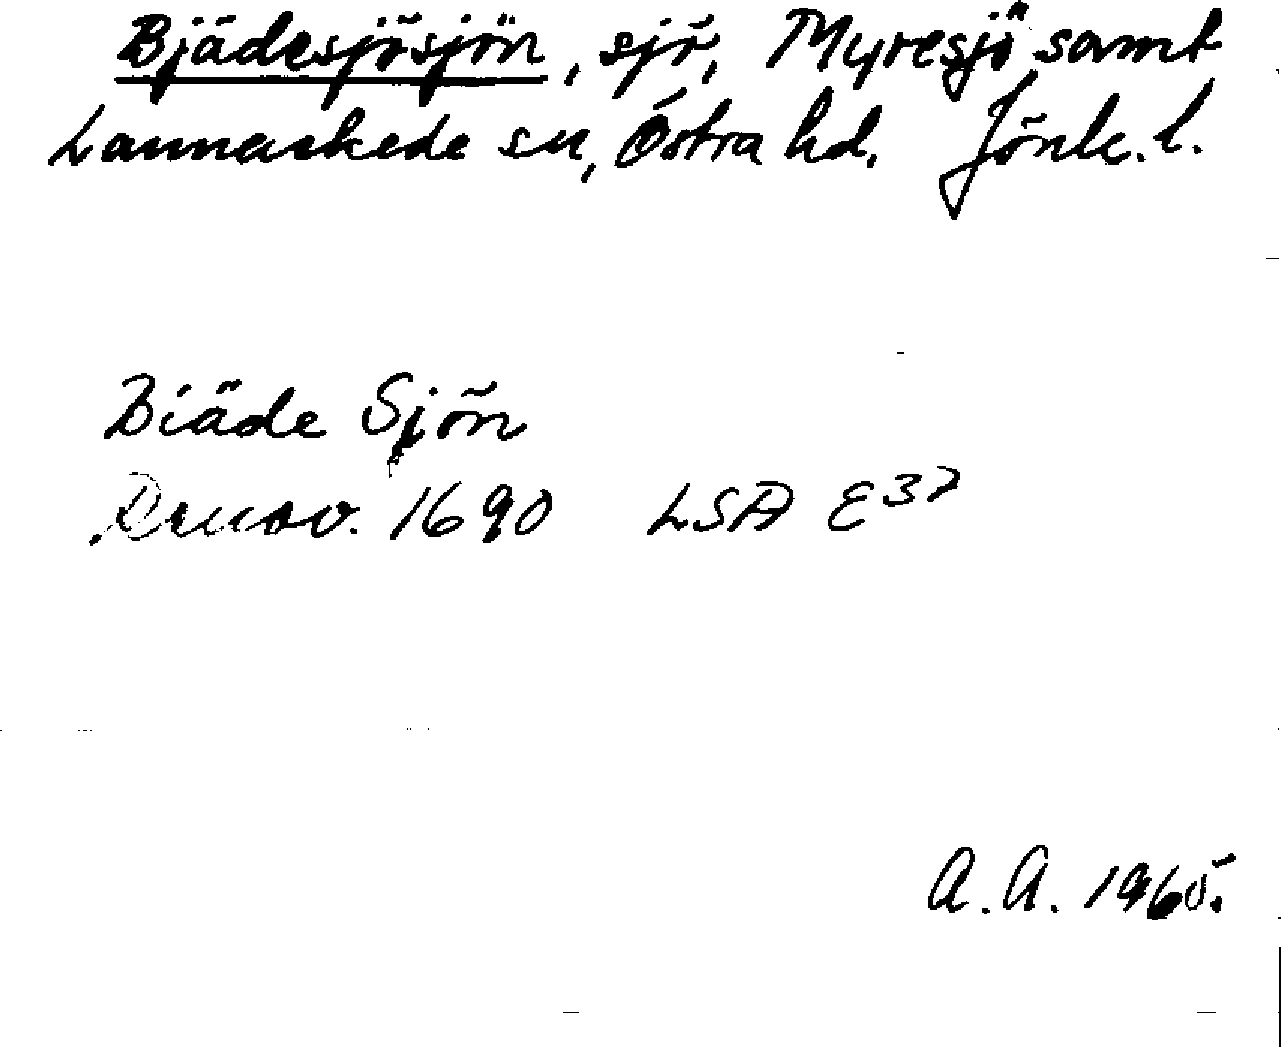 Bjädesjösjön, sjö, Myresjö samt
Lannaskede sn, Östra hd. Jönk. l.
Biäde Sjön
1690 LSA E37
A. A. 1965.